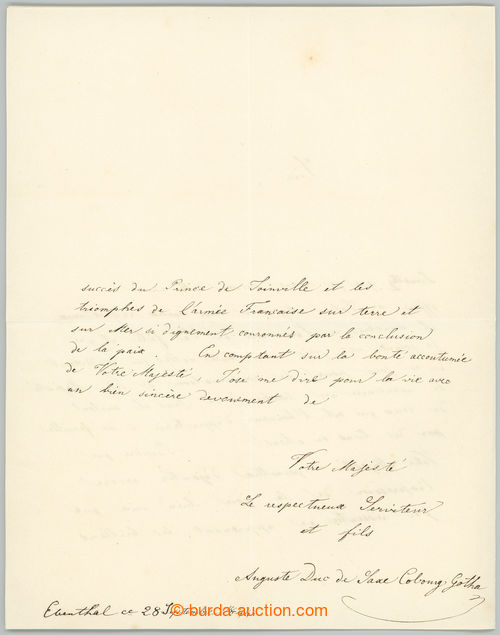 succès du Prince de Joinville et les
triomphes de l'armée Française sur terre et
sur Mer si dignement couronnés par la conclusion
de la paix. En comptant sur la bonté accoutumée
de Votre Majesté, j'ose me dire pour la vie avec
un bien sincère devouement de
Votre Majesté
Le respectueux Serviteur
et fils
Auguste Duc de Saxe Cobourg Gotha
Ebenthal ce 28
© burda-auction.com